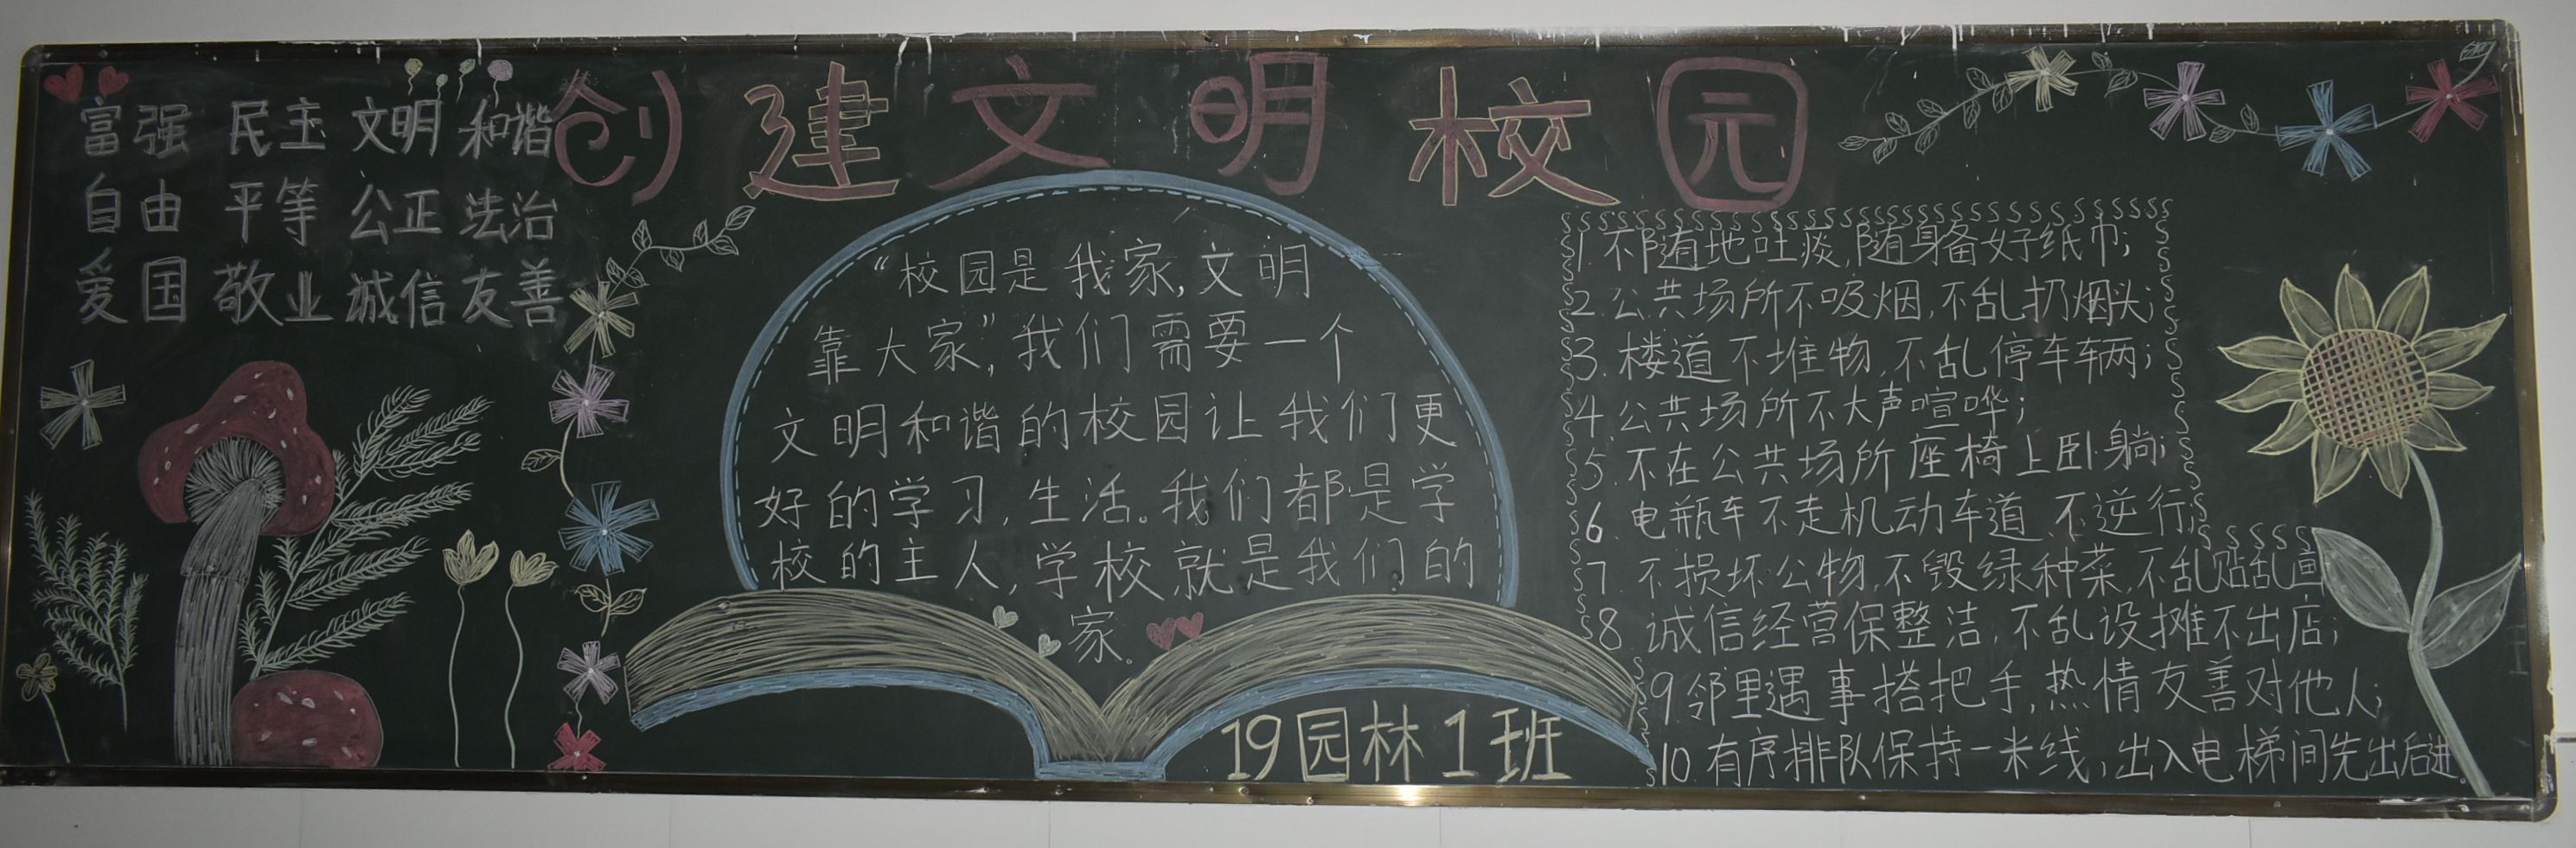 创建文明校园
富强 民主 文明 和谐
自由 平等 公正 法治
爱国 敬业 诚信 友善
“校园是我家,文明
靠大家”,我们需要一个
文明和谐的校园让我们更
好的学习,生活。我们都是学
校的主人,学校就是我们的
家。
19园林1班
1.不随地吐痰,随身备好纸巾;
2.公共场所不吸烟,不乱扔烟头;
3.楼道不堆物,不乱停车辆;
4.公共场所不大声喧哗;
5.不在公共场所座椅上卧躺;
6.电瓶车不走机动车道,不逆行;
7.不损坏公物,不毁绿种菜,不乱贴乱画
8.诚信经营保整洁,不乱设摊不出店;
9.邻里遇事搭把手,热情友善对他人;
10.有序排队保持一米线,出入电梯间先出后进。